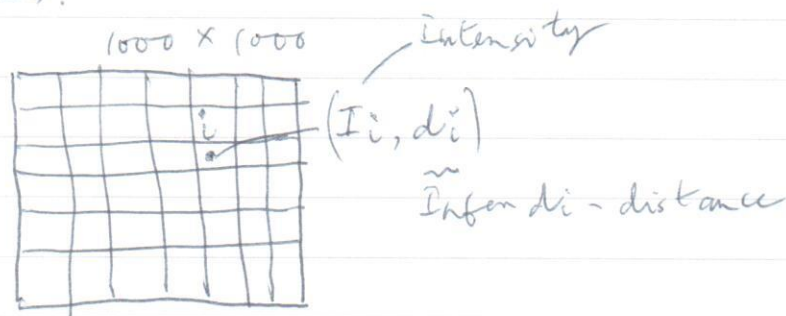 1000 × 1000
Intensity
i
(Ii, di)
Infer di - distance